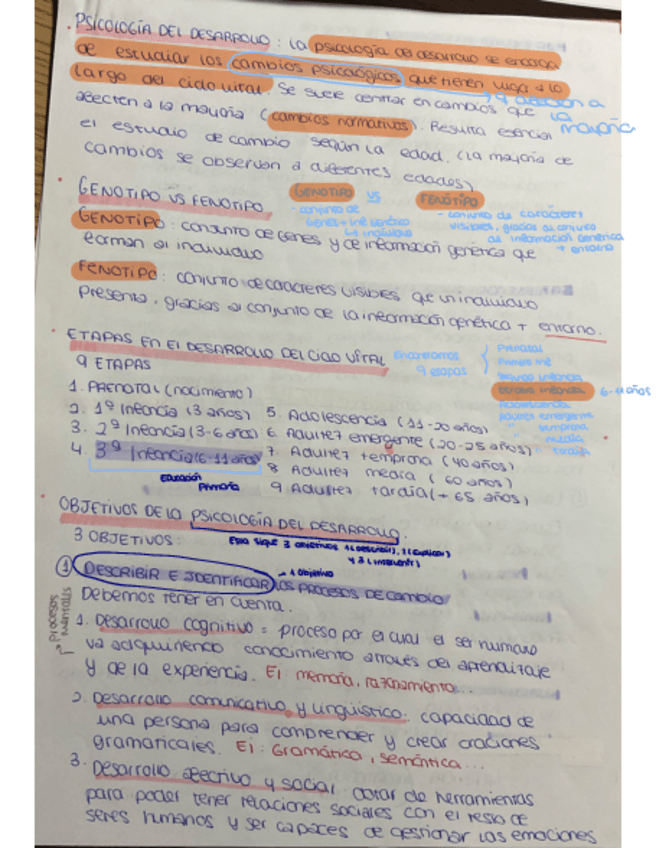 PSICOLOGÍA DEL DESARROLLO: La psicología del desarrollo se encarga
de estudiar los cambios psicológicos que tienen lugar a lo
largo del ciclo vital. Se suele centrar en cambios que
→ q afectan a la mayoría
afecten a la mayoría (cambios normativos). Resulta esencial
el estudio de cambio según la edad. (La mayoría de
cambios se observan a diferentes edades)
GENOTIPO VS FENOTIPO
GENOTIPO VS FENOTIPO
- conjunto de
genes + inf genética
↳ individuo
- conjunto de caracteres
visibles, gracias al conjunto
de información genética
+ entorno
GENOTIPO: conjunto de genes y de información genética que
forman al individuo
FENOTIPO: conjunto de caracteres visibles que un individuo
presenta, gracias al conjunto de la información genética + entorno.
ETAPAS EN EL DESARROLLO DEL CICLO VITAL
Encontramos
9 etapas
Prenatal
Primera inf
Segunda infancia
tercera infancia 6-11 años
Adolescencia
Adultez emergente
" temprana
" media
" tardía
9 ETAPAS
1. PRENATAL (nacimiento)
2. 1ª Infancia (3 años)
3. 2ª Infancia (3-6 años)
4. 3ª Infancia (6-11 años)
Educación
Primaria
5. Adolescencia (11-20 años)
6. Adultez emergente (20-25 años)
7. Adultez temprana (40 años)
8 Adultez media (60 años)
9 Adultez tardía (+ 65 años)
OBJETIVOS DE LA PSICOLOGÍA DEL DESARROLLO.
3 OBJETIVOS:
Esta sigue 3 objetivos 1 (describir), 2 (explicar)
y 3 (intervenir)
① DESCRIBIR E IDENTIFICAR LOS PROCESOS DE CAMBIO
→ 1 objetivo
Debemos tener en cuenta.
Procesos
mentales
1. Desarrollo cognitivo = proceso por el cual el ser humano
va adquiriendo conocimiento através del aprendizaje
y de la experiencia. Ej: memoria, razonamiento...
2. Desarrollo comunicativo y lingüístico: capacidad de
una persona para comprender y crear oraciones
gramaticales. Ej: Gramática, semántica...
3. Desarrollo afectivo y social: dotar de herramientas
para poder tener relaciones sociales con el resto de
seres humanos y ser capaces de gestionar las emociones